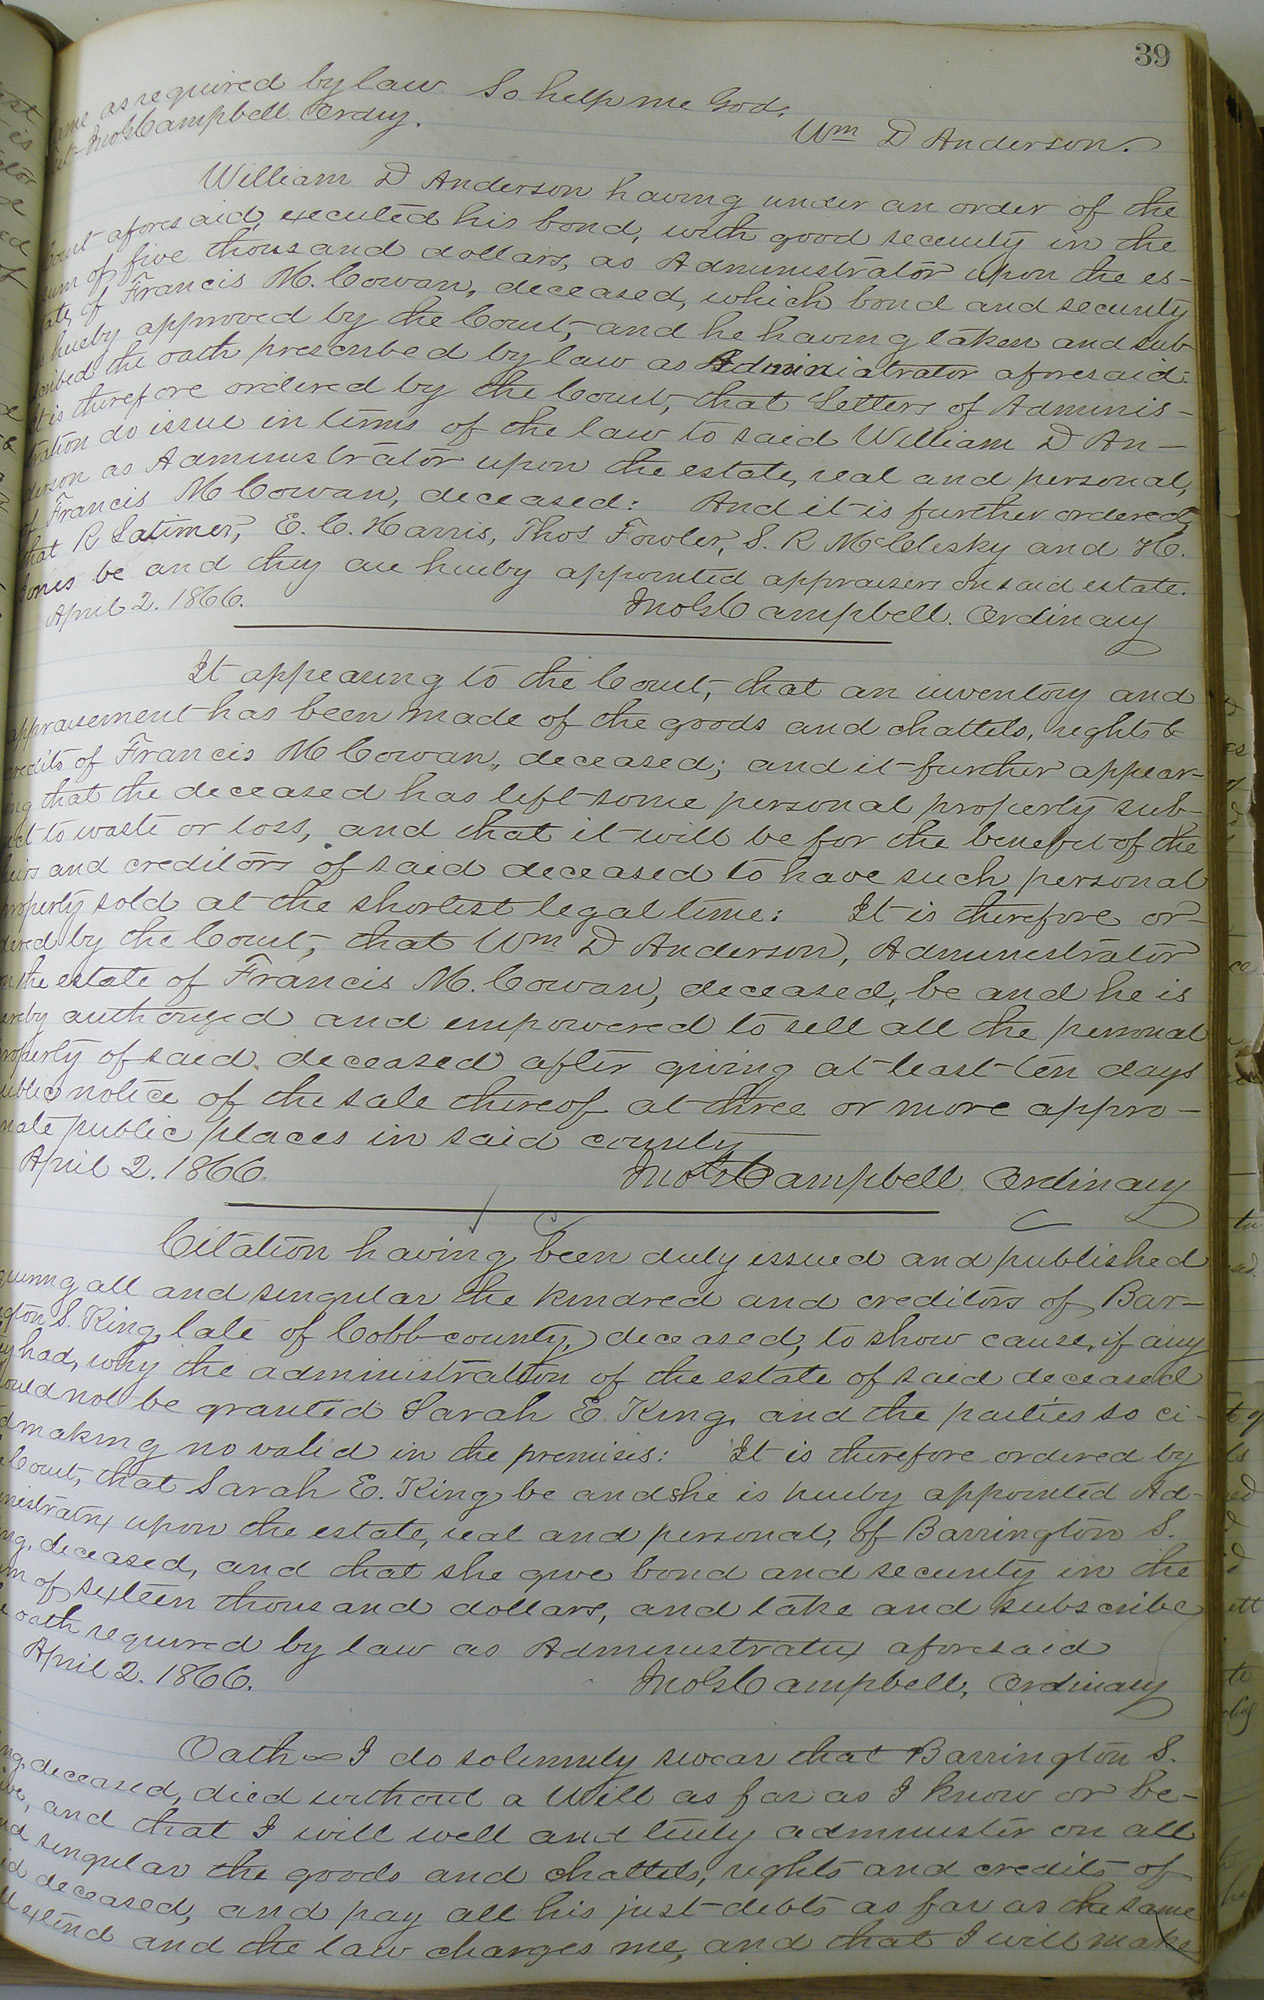 39
same as required by law So help me God.
Jno G Campbell Ordy. Wm D Anderson.
William D Anderson having under an order of the
Court aforesaid, executed his bond, with good security in the
sum of five thousand dollars, as Administrator upon the es-
tate, of Francis M. Cowan, deceased, which bond and security
hereby approved by the Court, and he having taken and sub
scribed the oath prescribed by law as Administrator aforesaid:
It is therefore ordered by the Court, that Letters of Adminis-
tration do issue in terms of the law to said William D An-
derson as Administrator upon the estate, real and personal,
of Francis M Cowan, deceased: And it is further ordered,
that R Latimer, E. C. Harris, Thos Fowler, S. R McClesky and H.
Jones be and they are hereby appointed appraisers on said estate.
April 2. 1866. Jno G Campbell. Ordinary
It appearing to the Court, that an inventory and
appraisement has been made of the goods and chattels, rights &
credits of Francis M Cowan, deceased; and it further appear-
ing that the deceased has left some personal property sub-
ject to waste or loss, and that it will be for the benefit of the
heirs and creditors of said deceased to have such personal
property sold at the shortest legal time: It is therefore or-
dered by the Court, that Wm D Anderson, Administrator
on the estate of Francis M. Cowan, deceased, be and he is
hereby authorized and empowered to sell all the personal
property of said deceased after giving at least ten days
public notice of the sale thereof at three or more appro-
priate public places in said county
April 2. 1866. Jno G Campbell Ordinary
Citation having been duly issued and published
requiring all and singular the kindred and creditors of Bar-
rington S. King, late of Cobb county, deceased, to show cause, if any
they had, why the administration of the estate of said deceased
should not be granted Sarah E. King, and the parties so ci-
ted making no valid in the premises: It is therefore ordered by
the Court, that Sarah E. King be and she is hereby appointed Ad-
ministratrix upon the estate, real and personal, of Barrington S.
King, deceased, and that she give bond and security in the
sum of sixteen thousand dollars, and take and subscribe
the oath required by law as Administratrix aforesaid
April 2. 1866. Jno G Campbell, Ordinary
Oath I do solemnly swear that Barrington S.
King, deceased, died without a Will as far as I know or be-
lieve, and that I will well and truly administer on all
and singular the goods and chattels, rights and credits of
said deceased, and pay all his just debts as far as the same
will extend and the law charges me, and that I will make